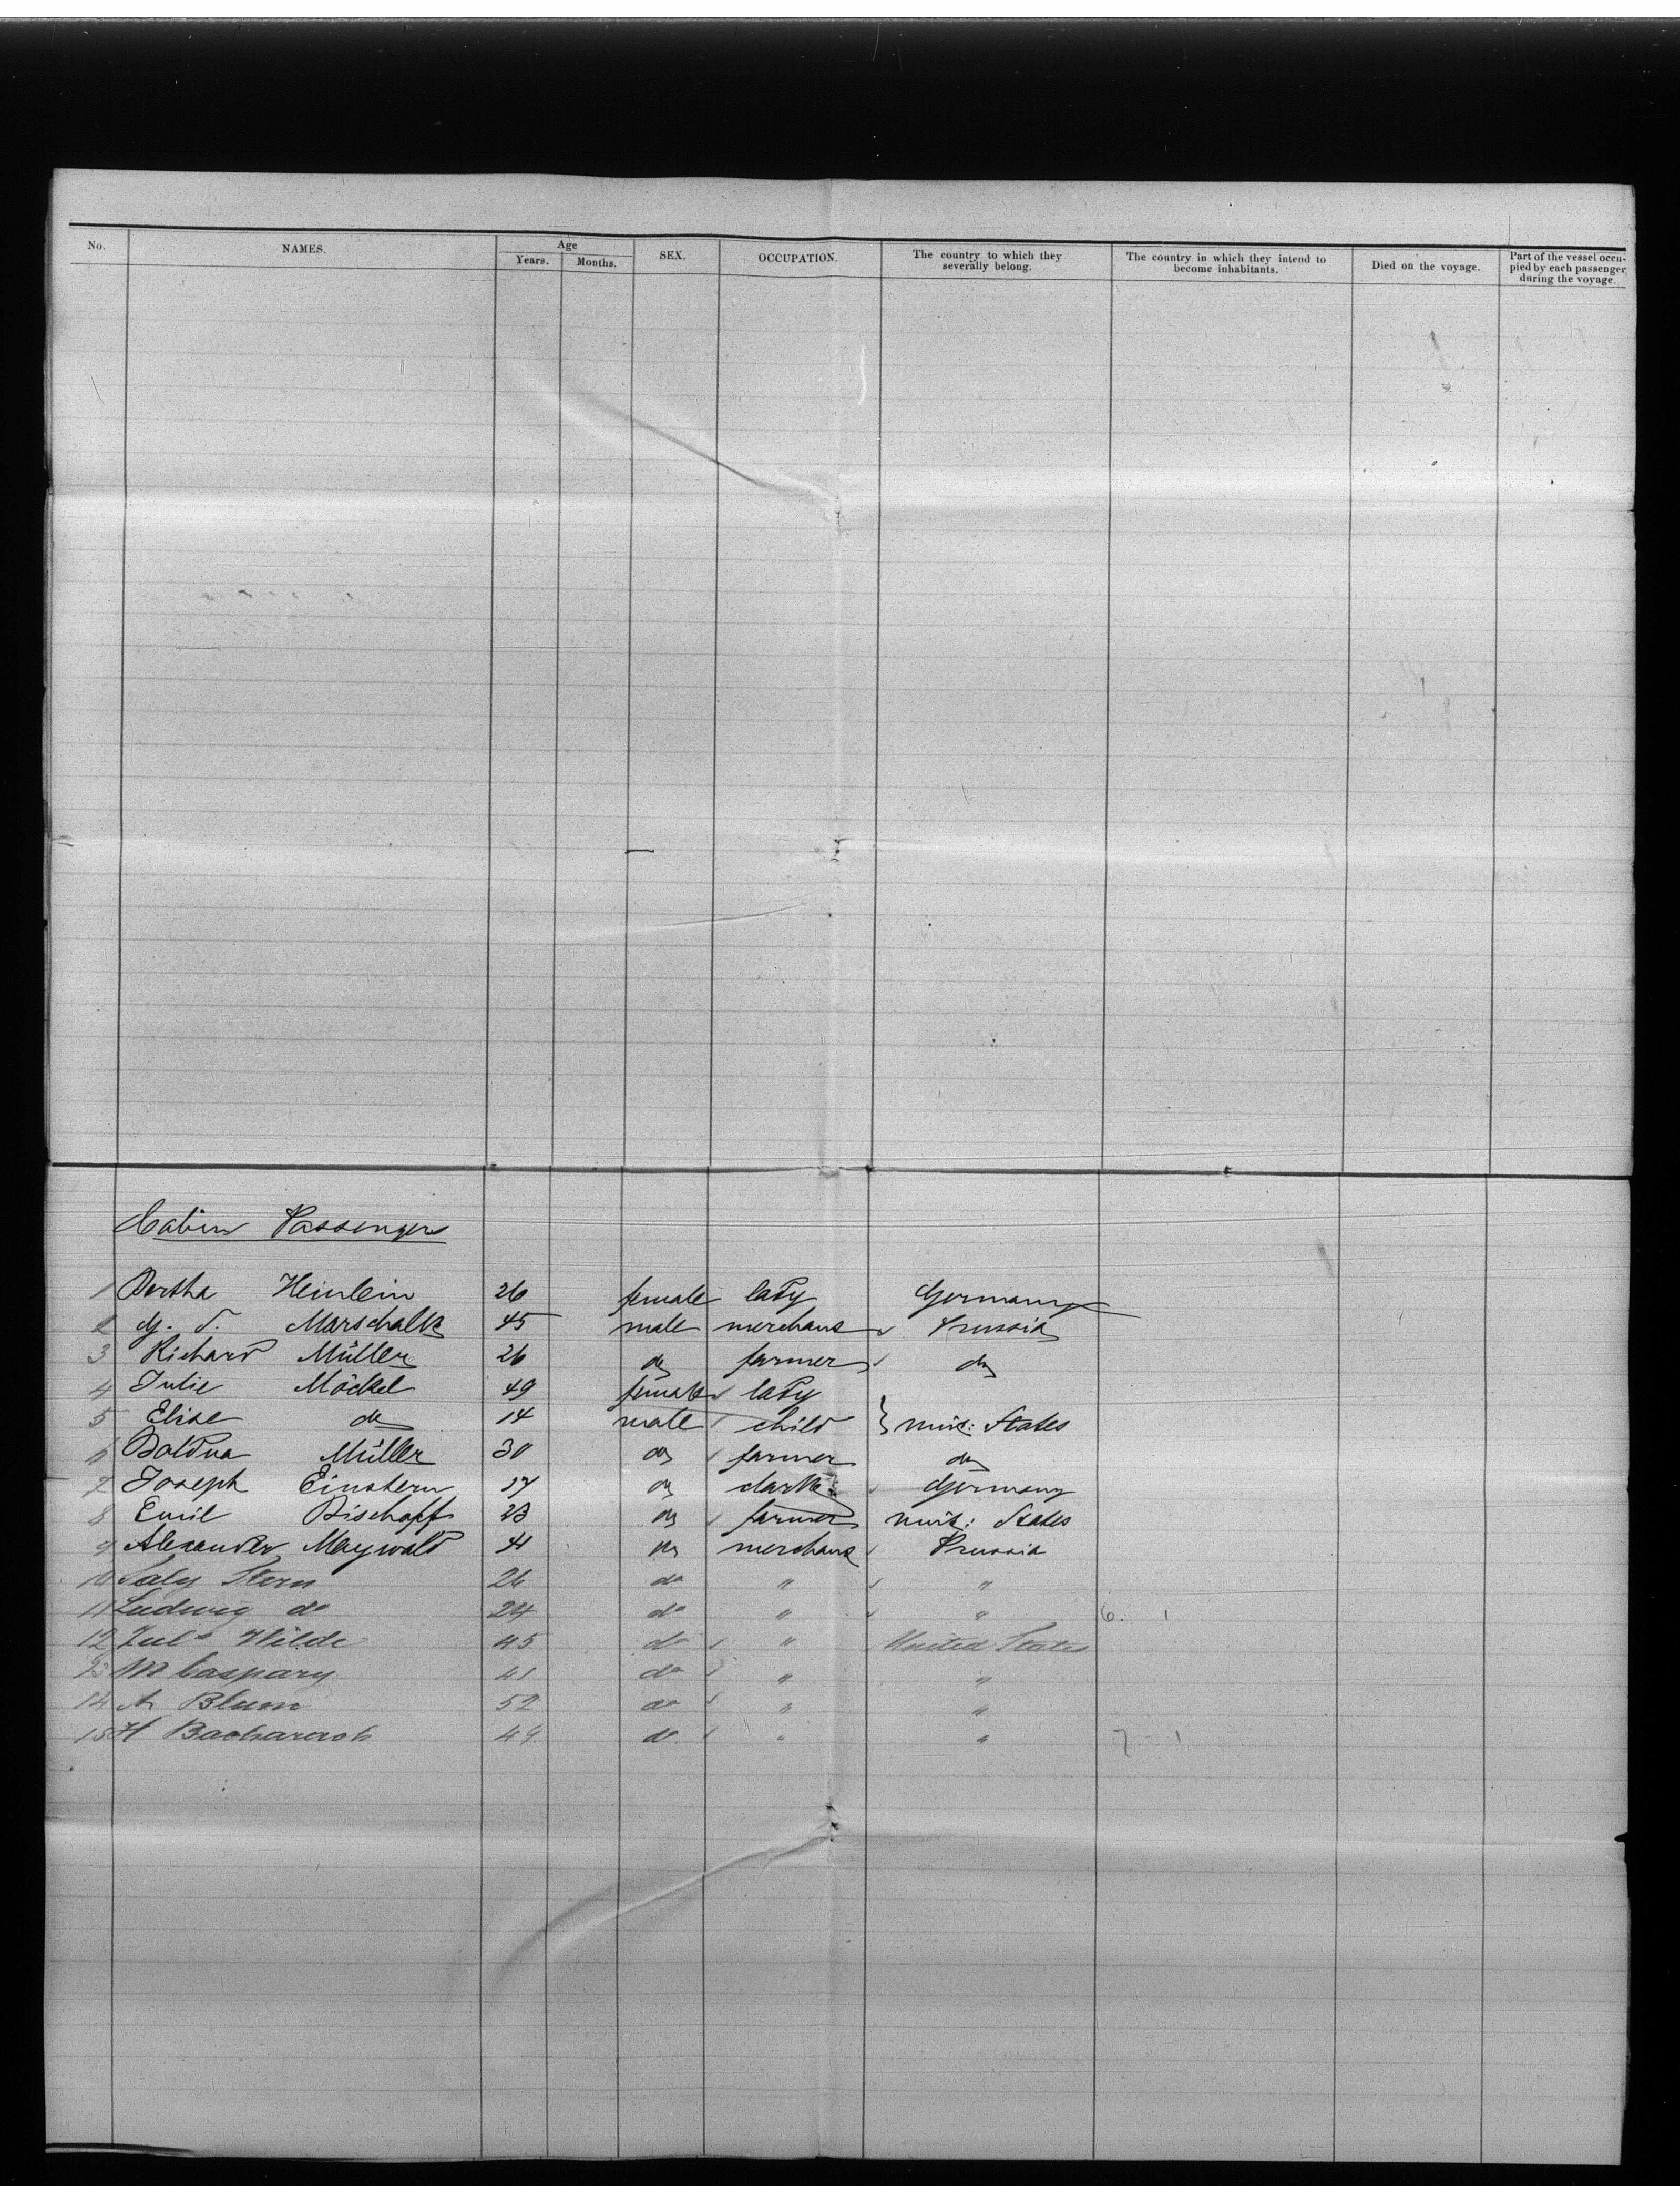 No. NAMES. Age SEX. OCCUPATION. The country to which they severally belong. The country in which they intend to become inhabitants. Died on the voyage. Part of the vessel occupied by each passenger during the voyage.
Years. Months.
Cabin Passengers
1 Bertha Heinlein 26 female lady Germany
2 G. S. Marschalk 45 male merchant Prussia
3 Richard Müller 26 do farmer do
4 Julie Möckel 49 female lady
5 Elise do 14 male child } unit: States
6 Müller 30 do farmer do
7 Joseph Einstern 17 do clark Germany
8 Emil Bischoff 23 do farmer unit: States
9 Alexander Maywald 41 do merchant Prussia
10 Saly Stern 26 do " "
11 Ludwig do 24 do " " 6. 1
12 Juls Wilde 45 do " United States
13 M Caspary 41 do " "
14 A Blum 52 do " "
15 H Bacharach 49 do " " 7 - 1